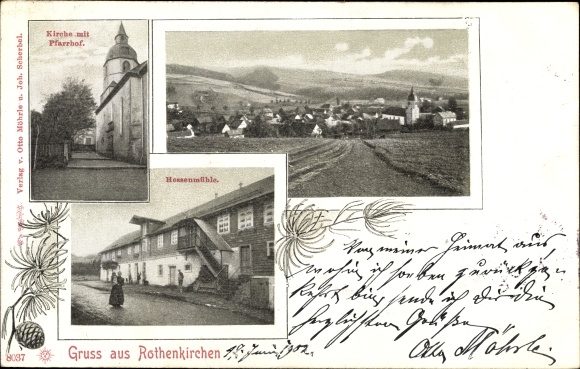 Kirche mit
Pfarrhof.
Verlag v. Otto Möhrle u. Joh. Scherbel.
Hessenmühle.
Von meiner Heimat aus,
wohin ich soeben zurückge-
kehrt bin, sende ich Dir die
herzlichsten Grüße
Otto Möhrle.
8037
Gruss aus Rothenkirchen
Juni 1902.